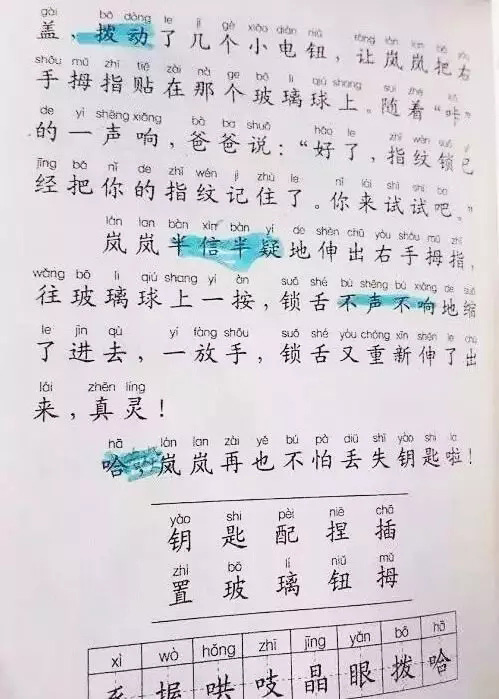 gài bō dòng le jǐ gè xiǎo diàn niǔ ràng lán lan bǎ yòu
盖，拨动了几个小电钮，让岚岚把右
shǒu mǔ zhǐ tiē zài nà ge bō li qiú shang suí zhe kā
手拇指贴在那个玻璃球上。随着“咔”
de yì shēng xiǎng bà ba shuō hǎo le zhǐ wén suǒ yǐ
的一声响，爸爸说：“好了，指纹锁已
jīng bǎ nǐ de zhǐ wén jì zhù le nǐ lái shì shi ba
经把你的指纹记住了。你来试试吧。”
lán lan bàn xìn bàn yí de shēn chū yòu shǒu mǔ zhǐ
岚岚半信半疑地伸出右手拇指，
wǎng bō li qiú shang yí àn suǒ shé bù shēng bù xiǎng de suō
往玻璃球上一按，锁舌不声不响地缩
le jìn qù yí fàng shǒu suǒ shé yòu chóng xīn shēn le chū
了进去，一放手，锁舌又重新伸了出
lái zhēn líng
来，真灵！
hā lán lan zài yě bú pà diū shī yào shi la
哈，岚岚再也不怕丢失钥匙啦！
yào shi pèi niē chā
钥 匙 配 捏 插
zhì bō li niǔ mǔ
置 玻 璃 钮 拇
xì wò hǒng zhī jīng yǎn bō hā
握 哄 吱 晶 眼 拨 哈